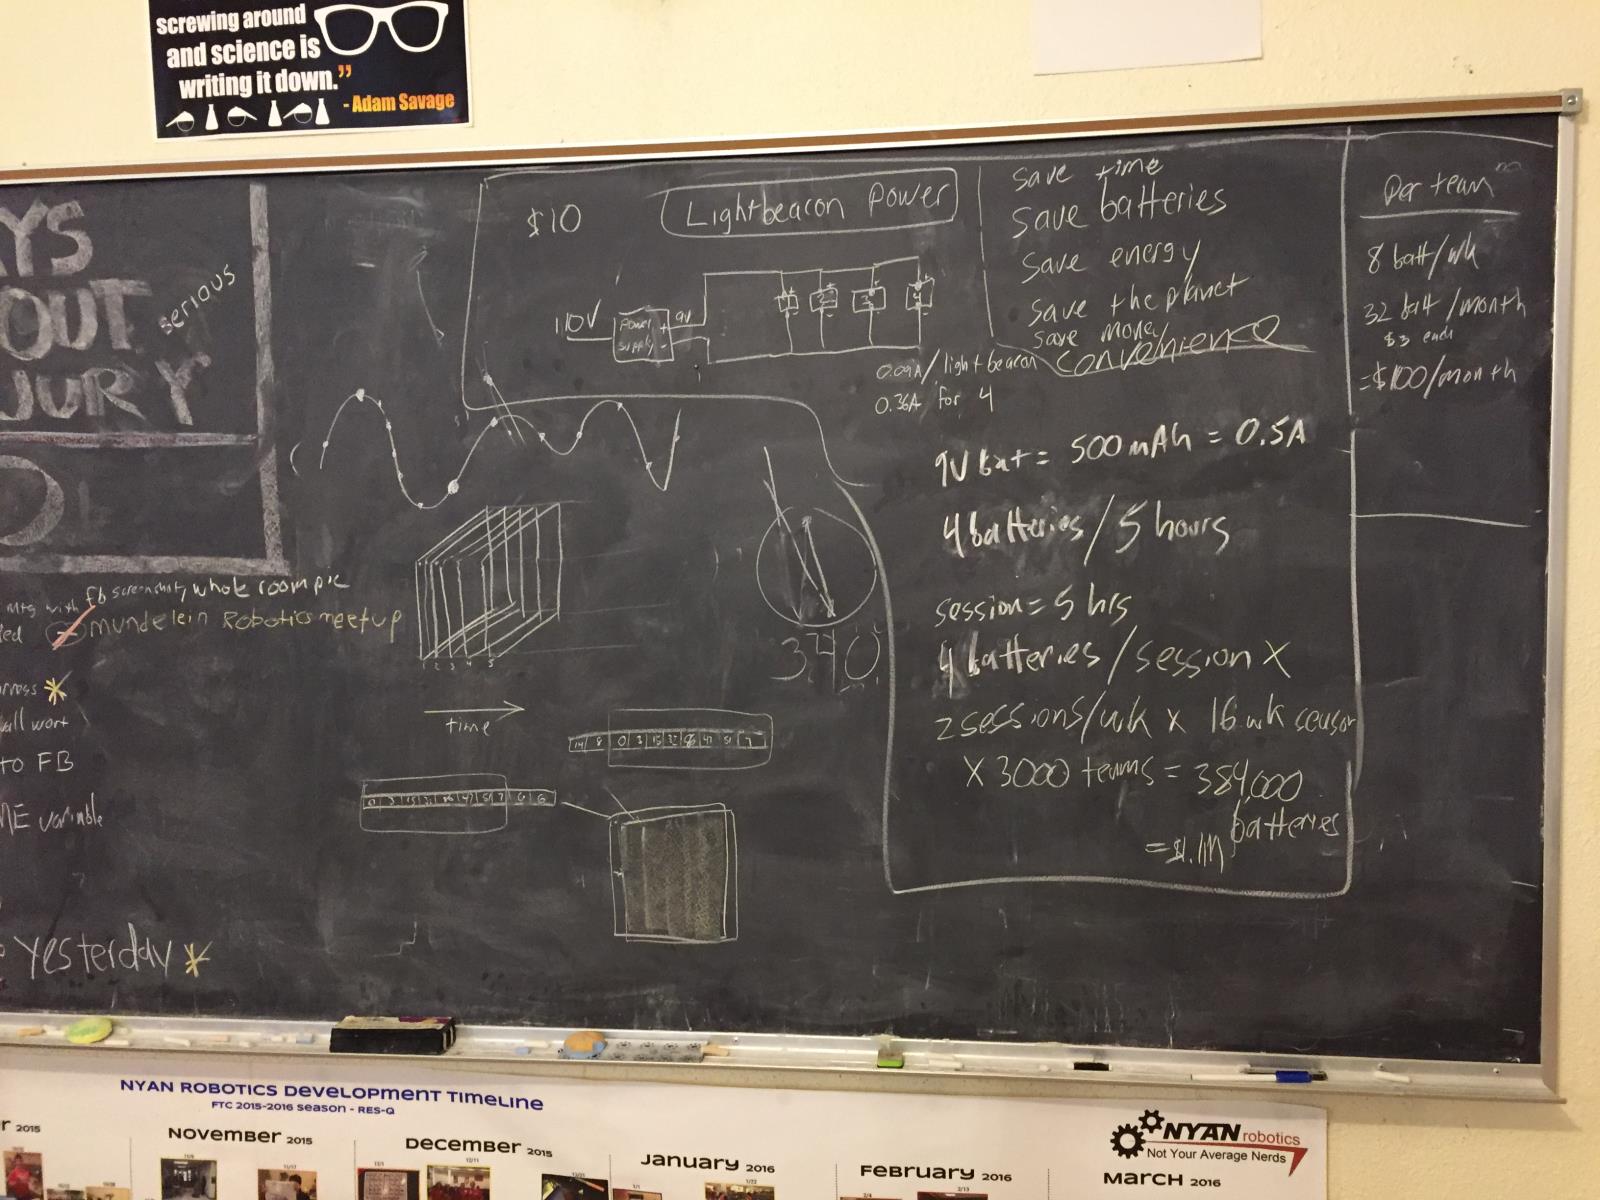 screwing around
and science is
writing it down."
- Adam Savage
YS
OUT
serious
JURY
$10
Lightbeacon Power
110V
Power
Supply
+
-
9V
1
2
3
4
save time
save batteries
save energy
save the planet
save money
convenience
0.09A/lightbeacon
0.36A for 4
9V bat = 500mAh = 0.5A
4 batteries/5 hours
session = 5 hrs
4 batteries/session X
2 sessions/wk x 16 wk season
x 3000 teams = 384,000
batteries
= $1.1M
Per team
8 batt/wk
32 batt/month
$3 each
= $100/month
Mtg with fb screenshot, whole room pic
mundelein Robotics meetup
1 2 3 4 5
time
340
14 8 0 3 15
wall wart
to FB
ME variable
yesterday *
NYAN ROBOTICS DEVELOPMENT TIMELINE
FTC 2015-2016 SEASON - RES-Q
r 2015
NOVEMBER 2015
DECEMBER 2015
JANUARY 2016
FEBRUARY 2016
MARCH 2016
NYAN robotics
Not Your Average Nerds